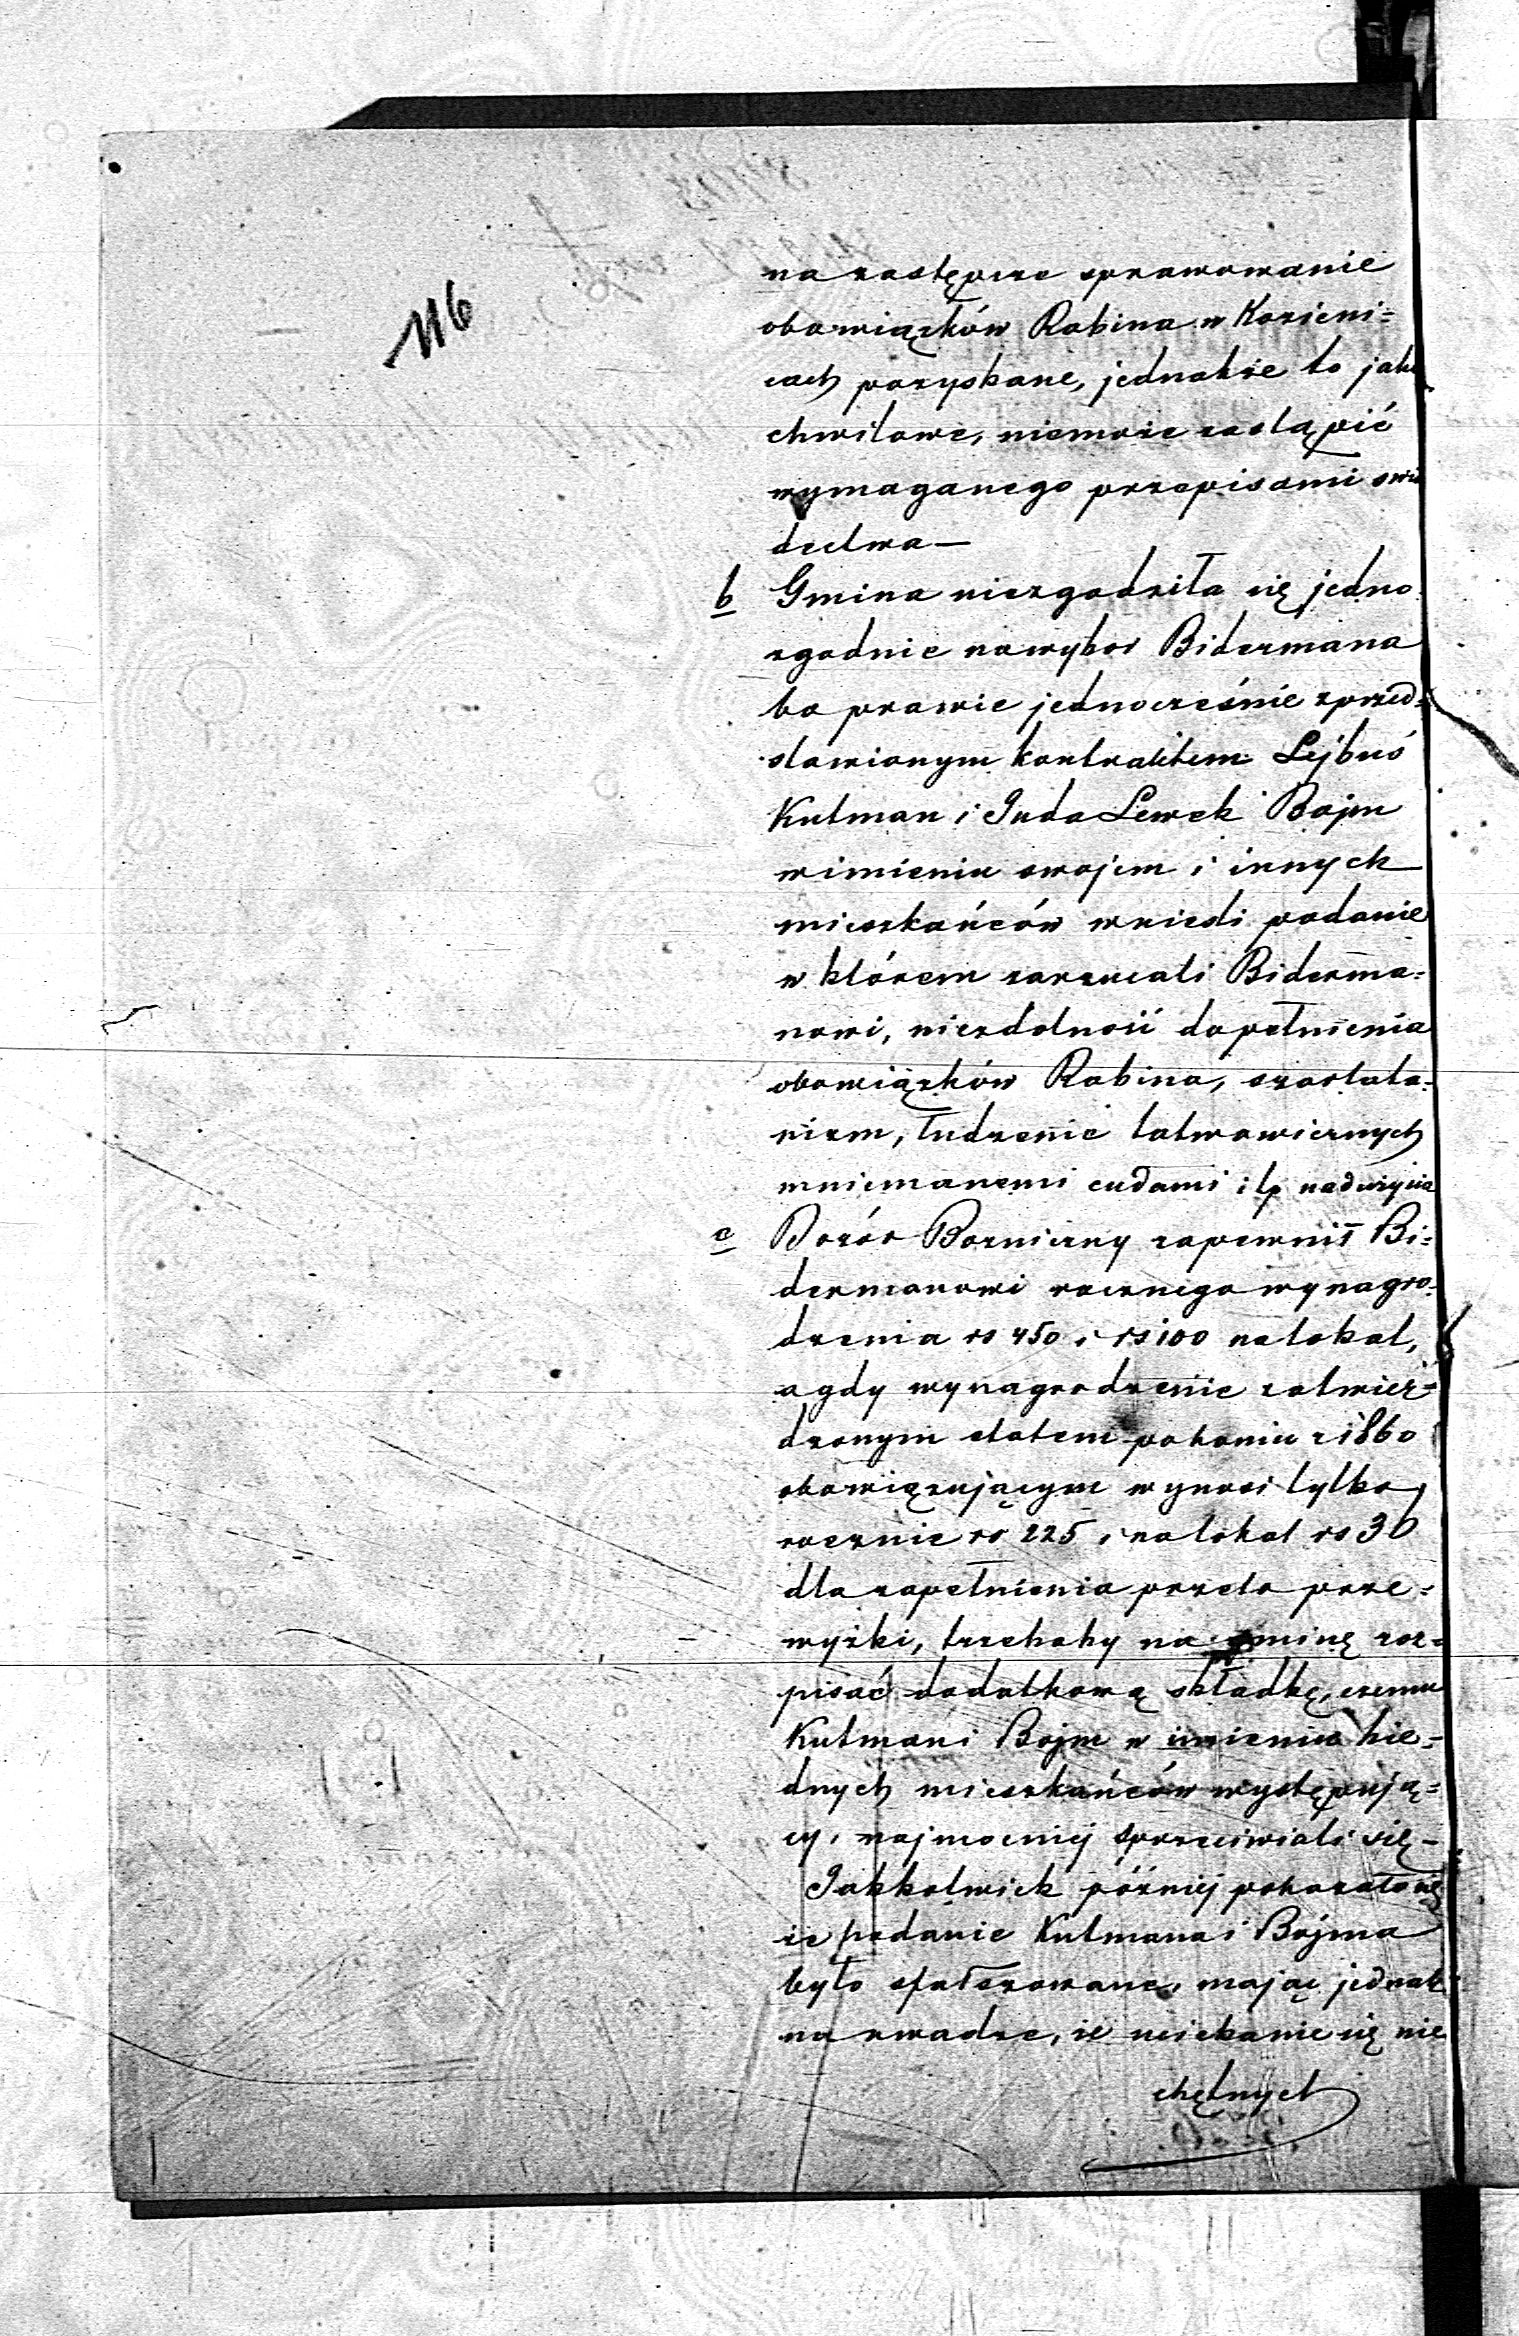 116
na zastępcze sprawowanie
obowiązków Rabina w Kozieni=
cach pozyskane, jednakże to jako
chwilowe, niemoże zastąpić
wymaganego przepisami świa
dectwa —
b Gmina niezgodziła się jedno
zgodnie nawybor Bidermana
bo prawie jednocześnie zprzed=
stawionym kontraktem Lejbuś
Kutman i Juda Lewek Bojm
wimieniu swojem i innych
mieszkańców wnieśli podanie
w którem zarzucali Biderma=
nowi, niezdolność dopełnienia
obowiązków Rabina, szarlata=
nizm, łudzenie latwowiernych
mniemanemi cudami itp nadużycia
c Dozór Bożniczny zapewnił Bi=
dermanowi rocznego wynagro=
dzenia rs 450 i rs 100 nalokal,
a gdy wynagrodzenie zatwier=
dzonym etatem pokoniec 1860
obowiązującym wynosi tylko
rocznie rs 225 i nalokal rs 30
dla zapełnienia przeto prze=
wyżki, trzebaby na gminę roz=
pisać dodatkową składkę, czemu
Kutman i Bojm w imieniu bie=
dnych mieszkańców występują=
cy, najmocniej sprzeciwiali się —
Jakkolwiek później pokazało się
że podanie Kutmana i Bojma
było sfałszowane, mając jednak
na uwadze, że uciekanie się nie
chętnych